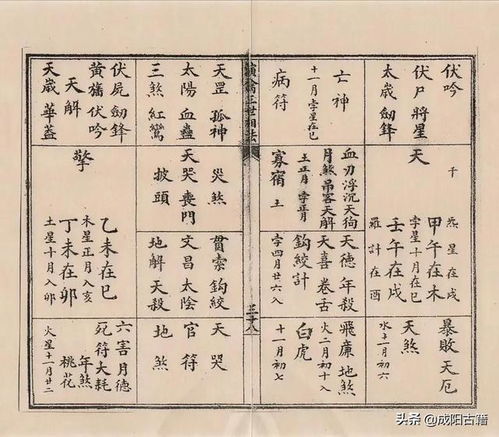 伏吟
伏尸將星
太歲劍鋒
亡神
十一月孛星在巳
病符
天
干
甲午在未
炁星在戌
孛星十月在巳
壬午在戌
羅計在酉
血刃浮沉天狗
月煞吊客天解
土正月孛正月
寡宿
土
暴敗天厄
天煞
水十一月初六
天德年殺
天喜卷舌
鈎絞計
孛四月廿六入
飛廉地煞
火二月初十入
白虎
十一月初七
三十八
天罡孤神
太陽血蠱
三煞紅鸞
伏屍劍鋒
黃旛伏吟
天解
天歲華蓋
災煞
天哭喪門
披頭
擎
乙未在巳
未星正月入亥
丁未在卯
土星十月入卯
貫索鈎絞
文昌太陰
地解天殺
天哭
官符
地煞
六害月德
死符大耗
年煞
桃花
火星十一月廿二
头条 @成阳古籍